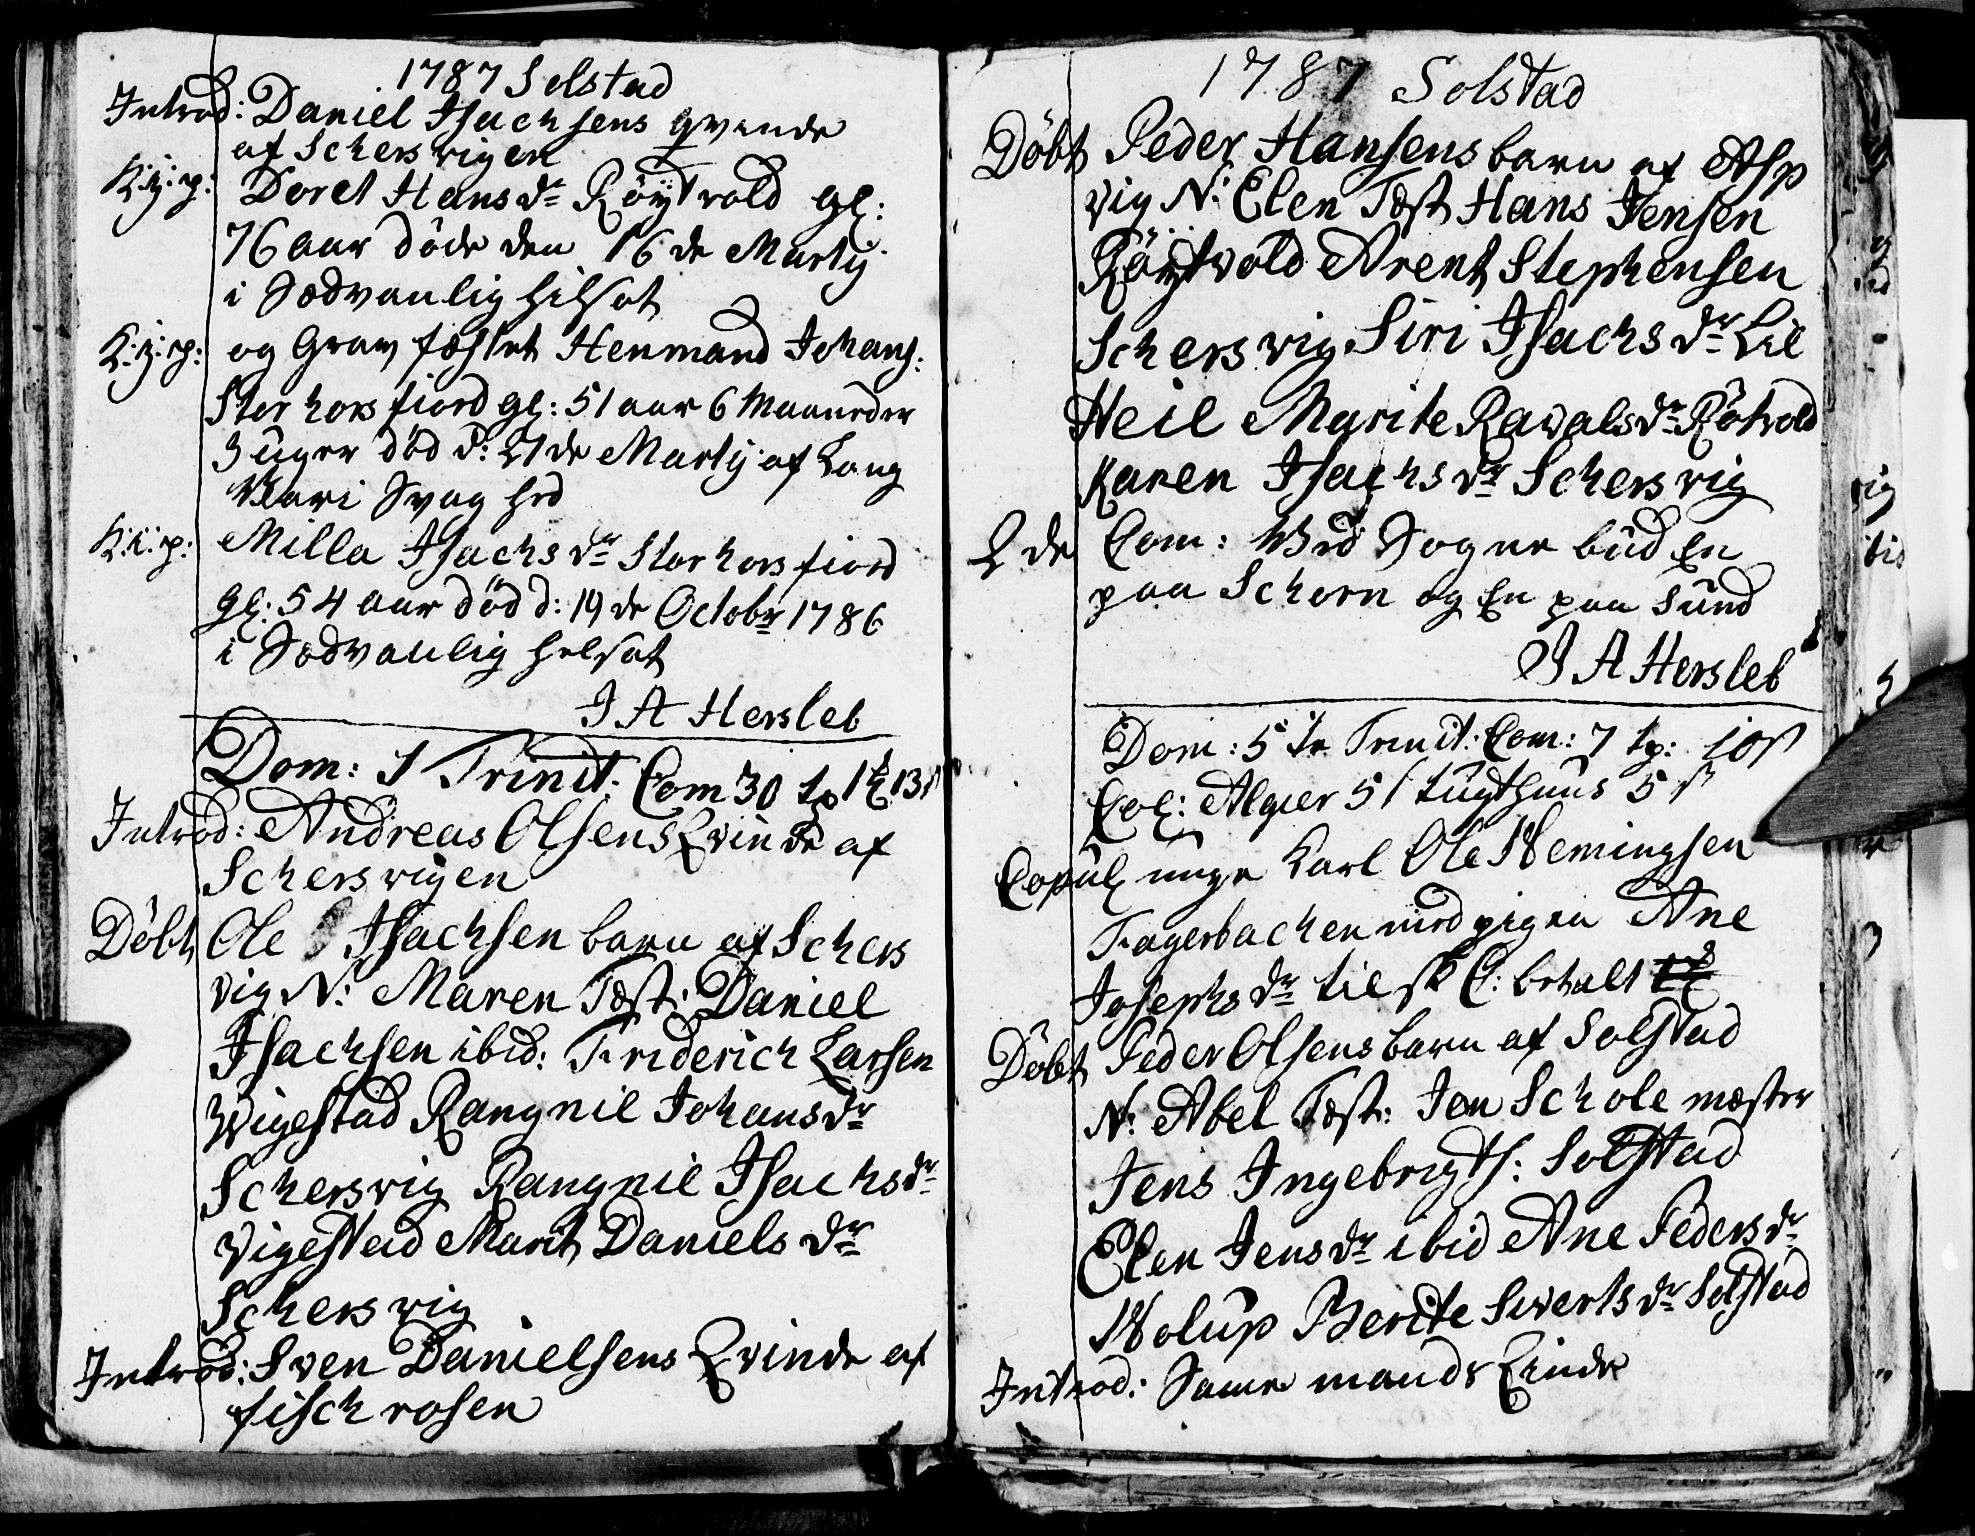 1787 Solstad
Introd: Daniel Isachsens qvinde
af Schersvigen
K: j: p: Doret Hansdr Röytvold gl:
76 aar döde den 16 de Martij
i Sædvanlig hilsot
K: j: p: og Grav fæstet Henmand Johans:
Storhorsfiord gl: 51 aar 6 Maaneder
3 uger död d: 21 de Martij af Lang
Vari Svaghed
K: j: p: Milla Isachsdr Storhorsfiord
gl: 54 aar död d: 19 de Octobr 1786
i Sædvanlig helsot
J A Hersleb
Dom: 1 Trinit: Com 30 tp
Introd: Andreas Olsens Qvinde af
Schersvigen
Döbt Ole Isachsen barn af Schers
vig N: Maren Tæst: Daniel
Isachsen ibid: Friderich Larsen
Wigestad Rangnil Johansdr
Schersvig Rangnil Isachsdr
Vigestad Marit Daniels dr
Schersvig
Introd: Sven Danielsens Qvinde af
fischrosen
1787 Solstad
Döbt Peder Hansens barn af Asp
vig N: Elen Tæst Hans Jensen
Röytvold Arent Stephensen
Schersvig Siri Isachs dr Lil
Heil Marite Ravalsdr Rötvold
Karen Isachs dr Schersvig
2 de Com: Ved Sogne bud En
paa Schorn og En paa Sund
J A Hersleb
Dom: 5 te Trinit: Com: 7 tp: 10 s
Col: Algier 5 s tugthuus 5 s
Copul unge Karl Ole Hemingsen
Fagerbachen med pigen Ane
Josephs dr til sk C: betalt
Döbt Peder Olsens barn af Solstad
N: Abel Tæst: Jen Schole mæster
Jens Ingebrigts: Solstad
Elen Jensdr ibid Ane Pedersdr
Holup Berite Siverts dr Solstad
Introd: Samme mands Cinde